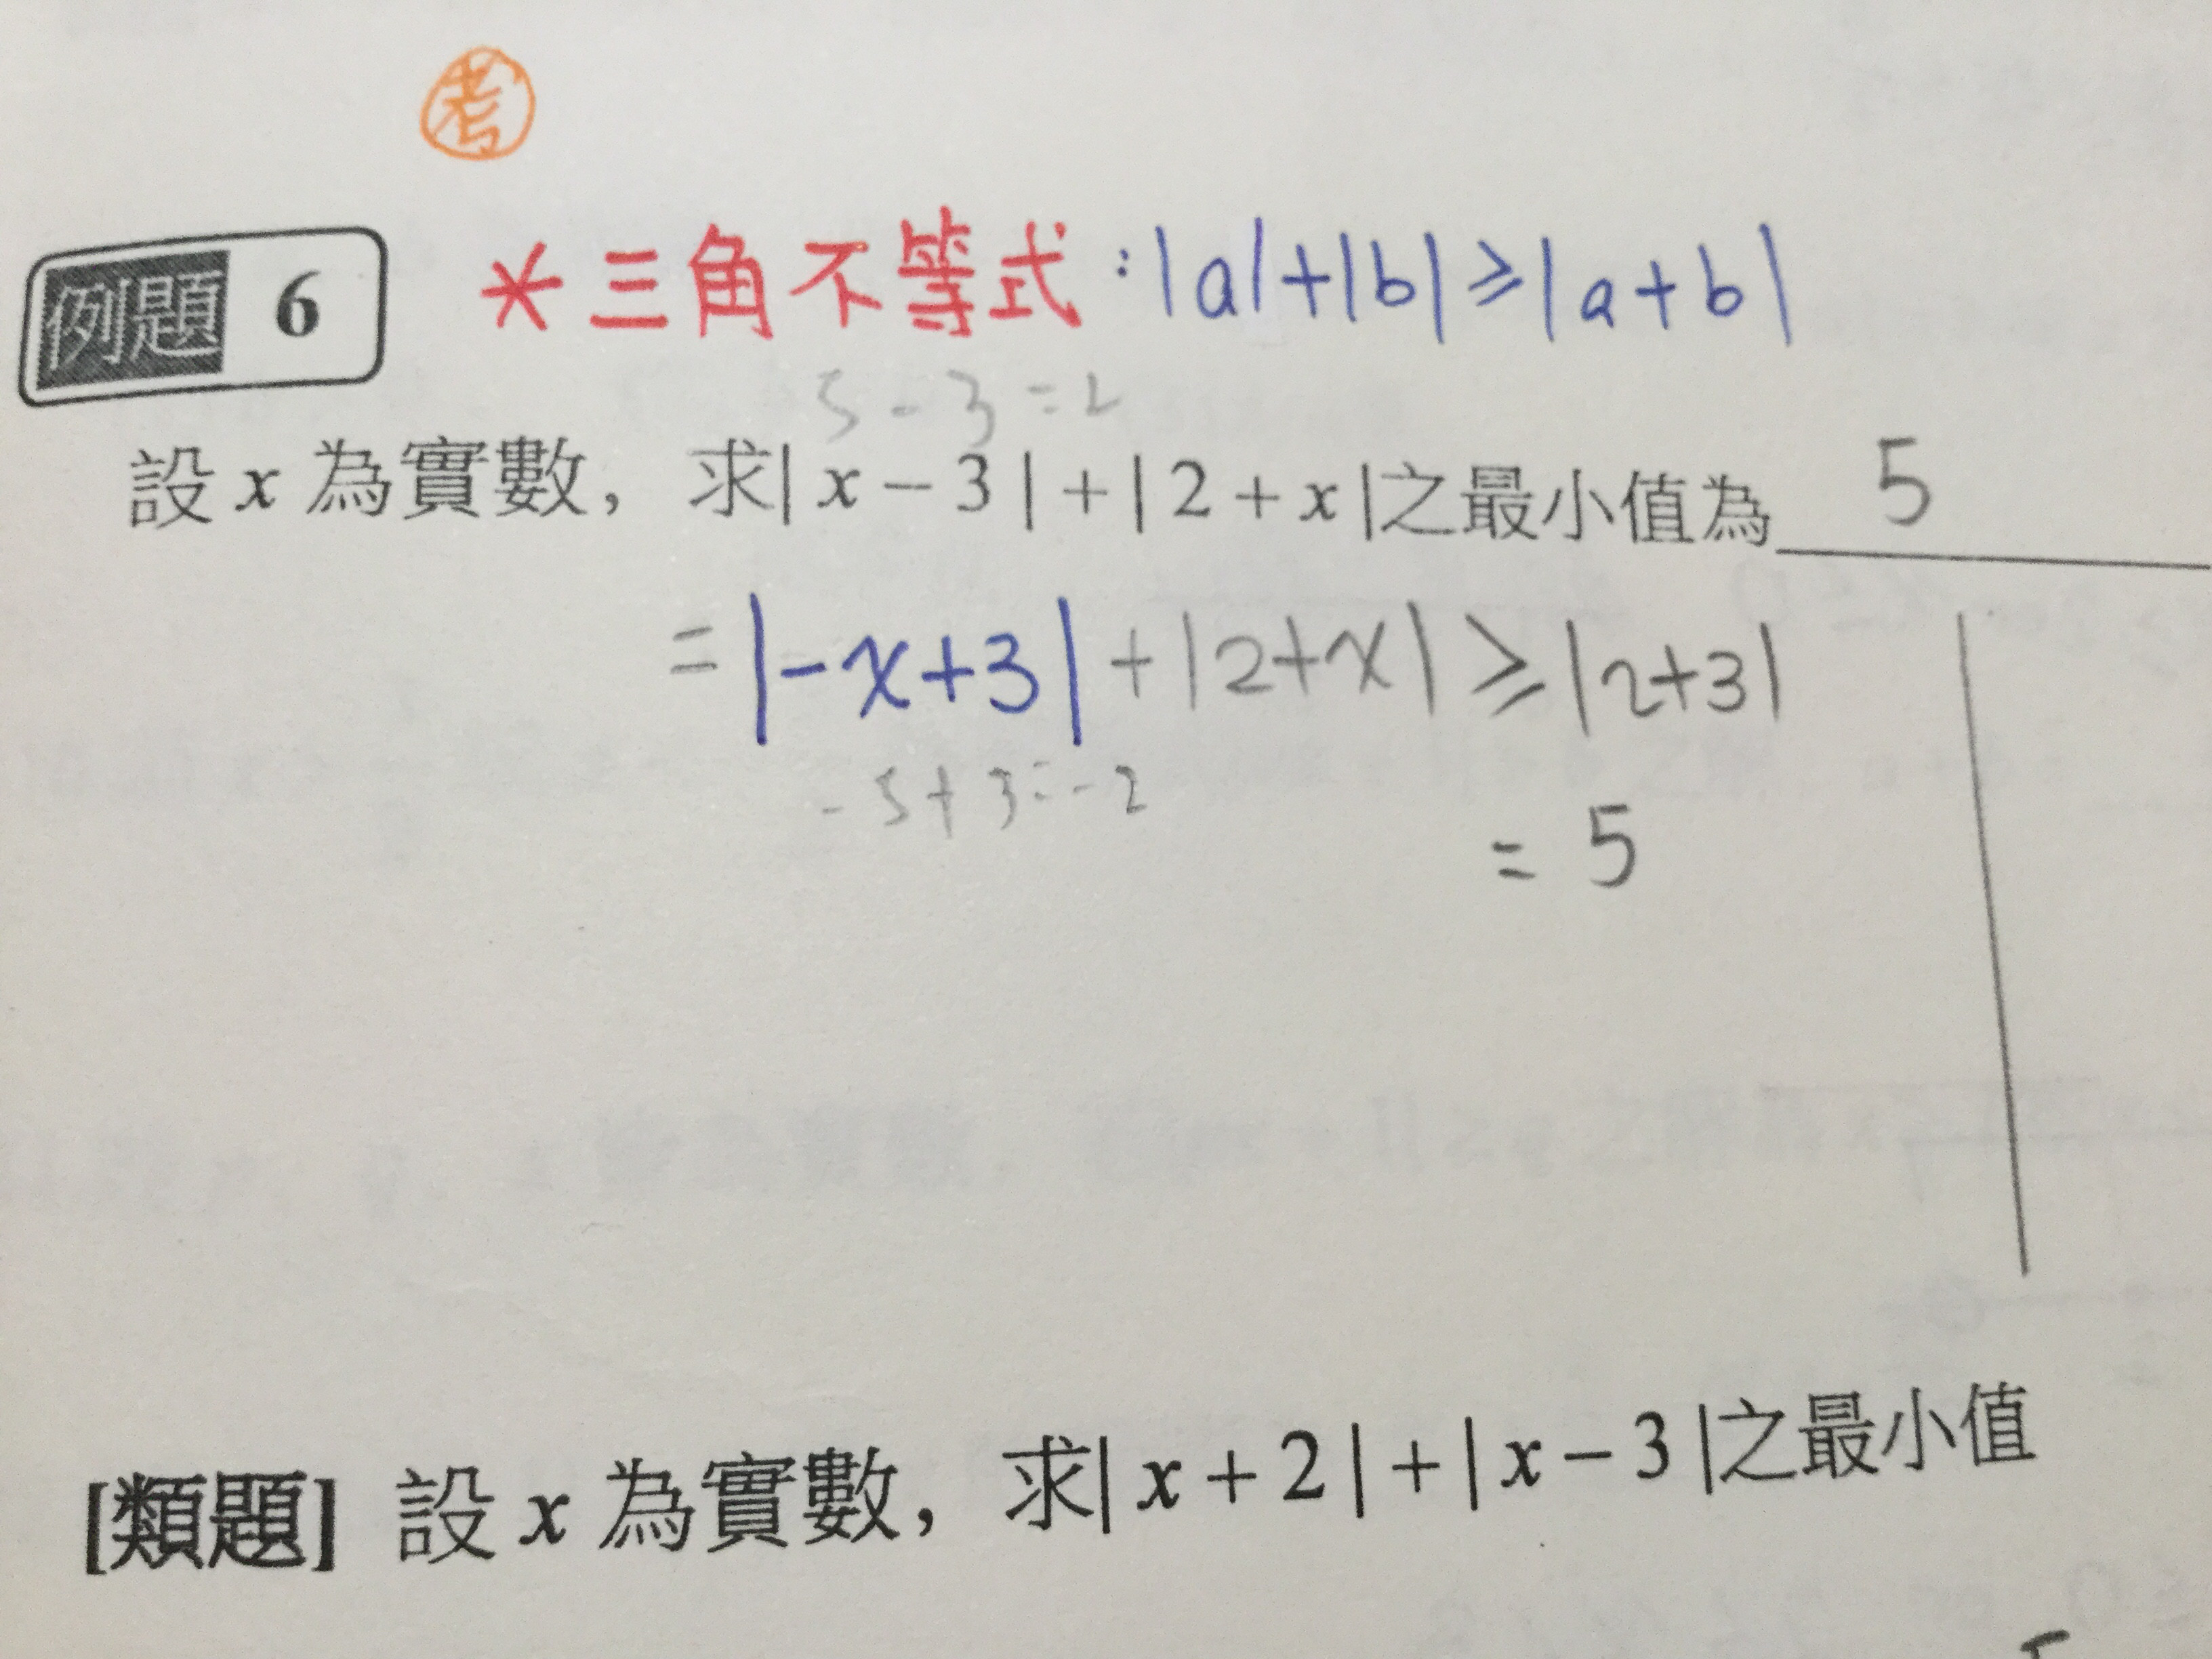 考
例題 6 *三角不等式:|a|+|b|≥|a+b|
5-3=2
設 x 為實數，求| x − 3 | + | 2 + x |之最小值為 5
= |-x+3| + |2+x| ≥ |2+3|
-5+3=-2
= 5
[類題] 設 x 為實數，求| x + 2 | + | x − 3 |之最小值